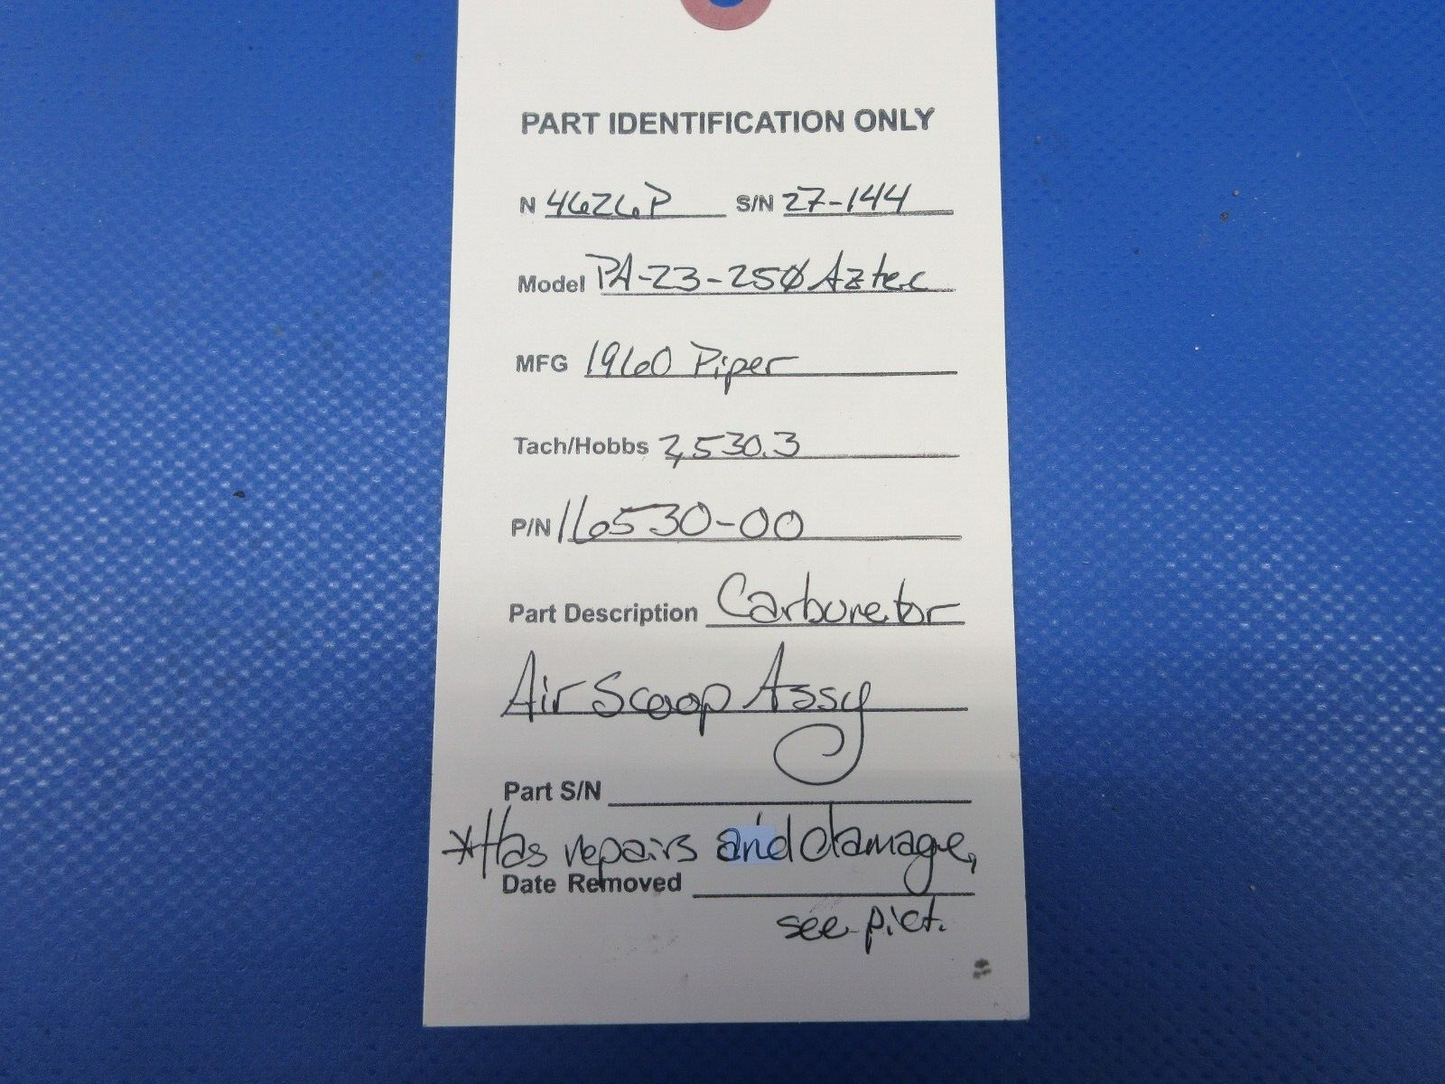 PART IDENTIFICATION ONLY
N 4626P S/N 27-144
Model PA-23-250 Aztec
MFG 1960 Piper
Tach/Hobbs 2,530.3
P/N 16530-00
Part Description Carburetor
Air Scoop Assy
Part S/N
*Has repairs and damage,
Date Removed
see pict.